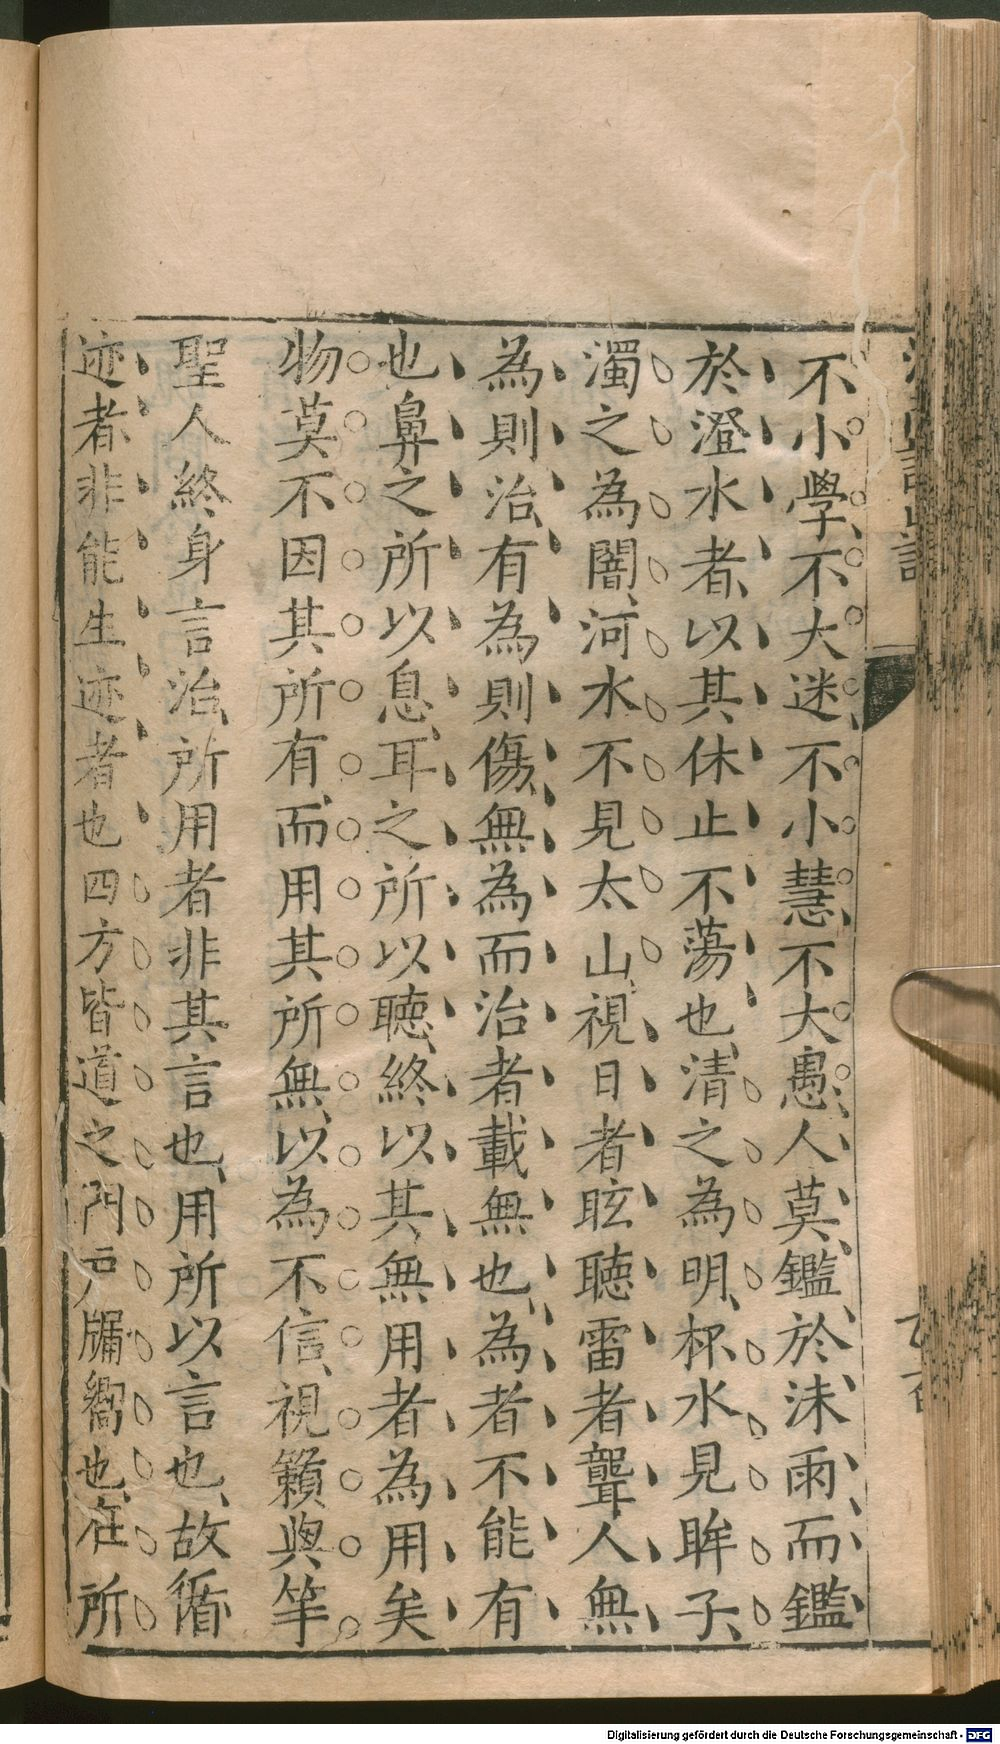 不小學、不大迷、不小慧、不大愚、人莫鑑於沫雨、而鑑
於澄水者、以其休止不蕩也、清之為明、杯水見眸子、
濁之為闇、河水不見太山、視日者眩、聽雷者聾、人無
為則治、有為則傷、無為而治者載無也、為者不能有
也、鼻之所以息、耳之所以聽、終以其無用者為用矣
物莫不因其所有、而用其所無、以為不信、視籟與竽
聖人終身言治、所用者非其言也、用所以言也、故循
迹者非能生迹者也四方皆道之門戶牖嚮也、在所
Digitalisierung gefördert durch die Deutsche Forschungsgemeinschaft - DFG